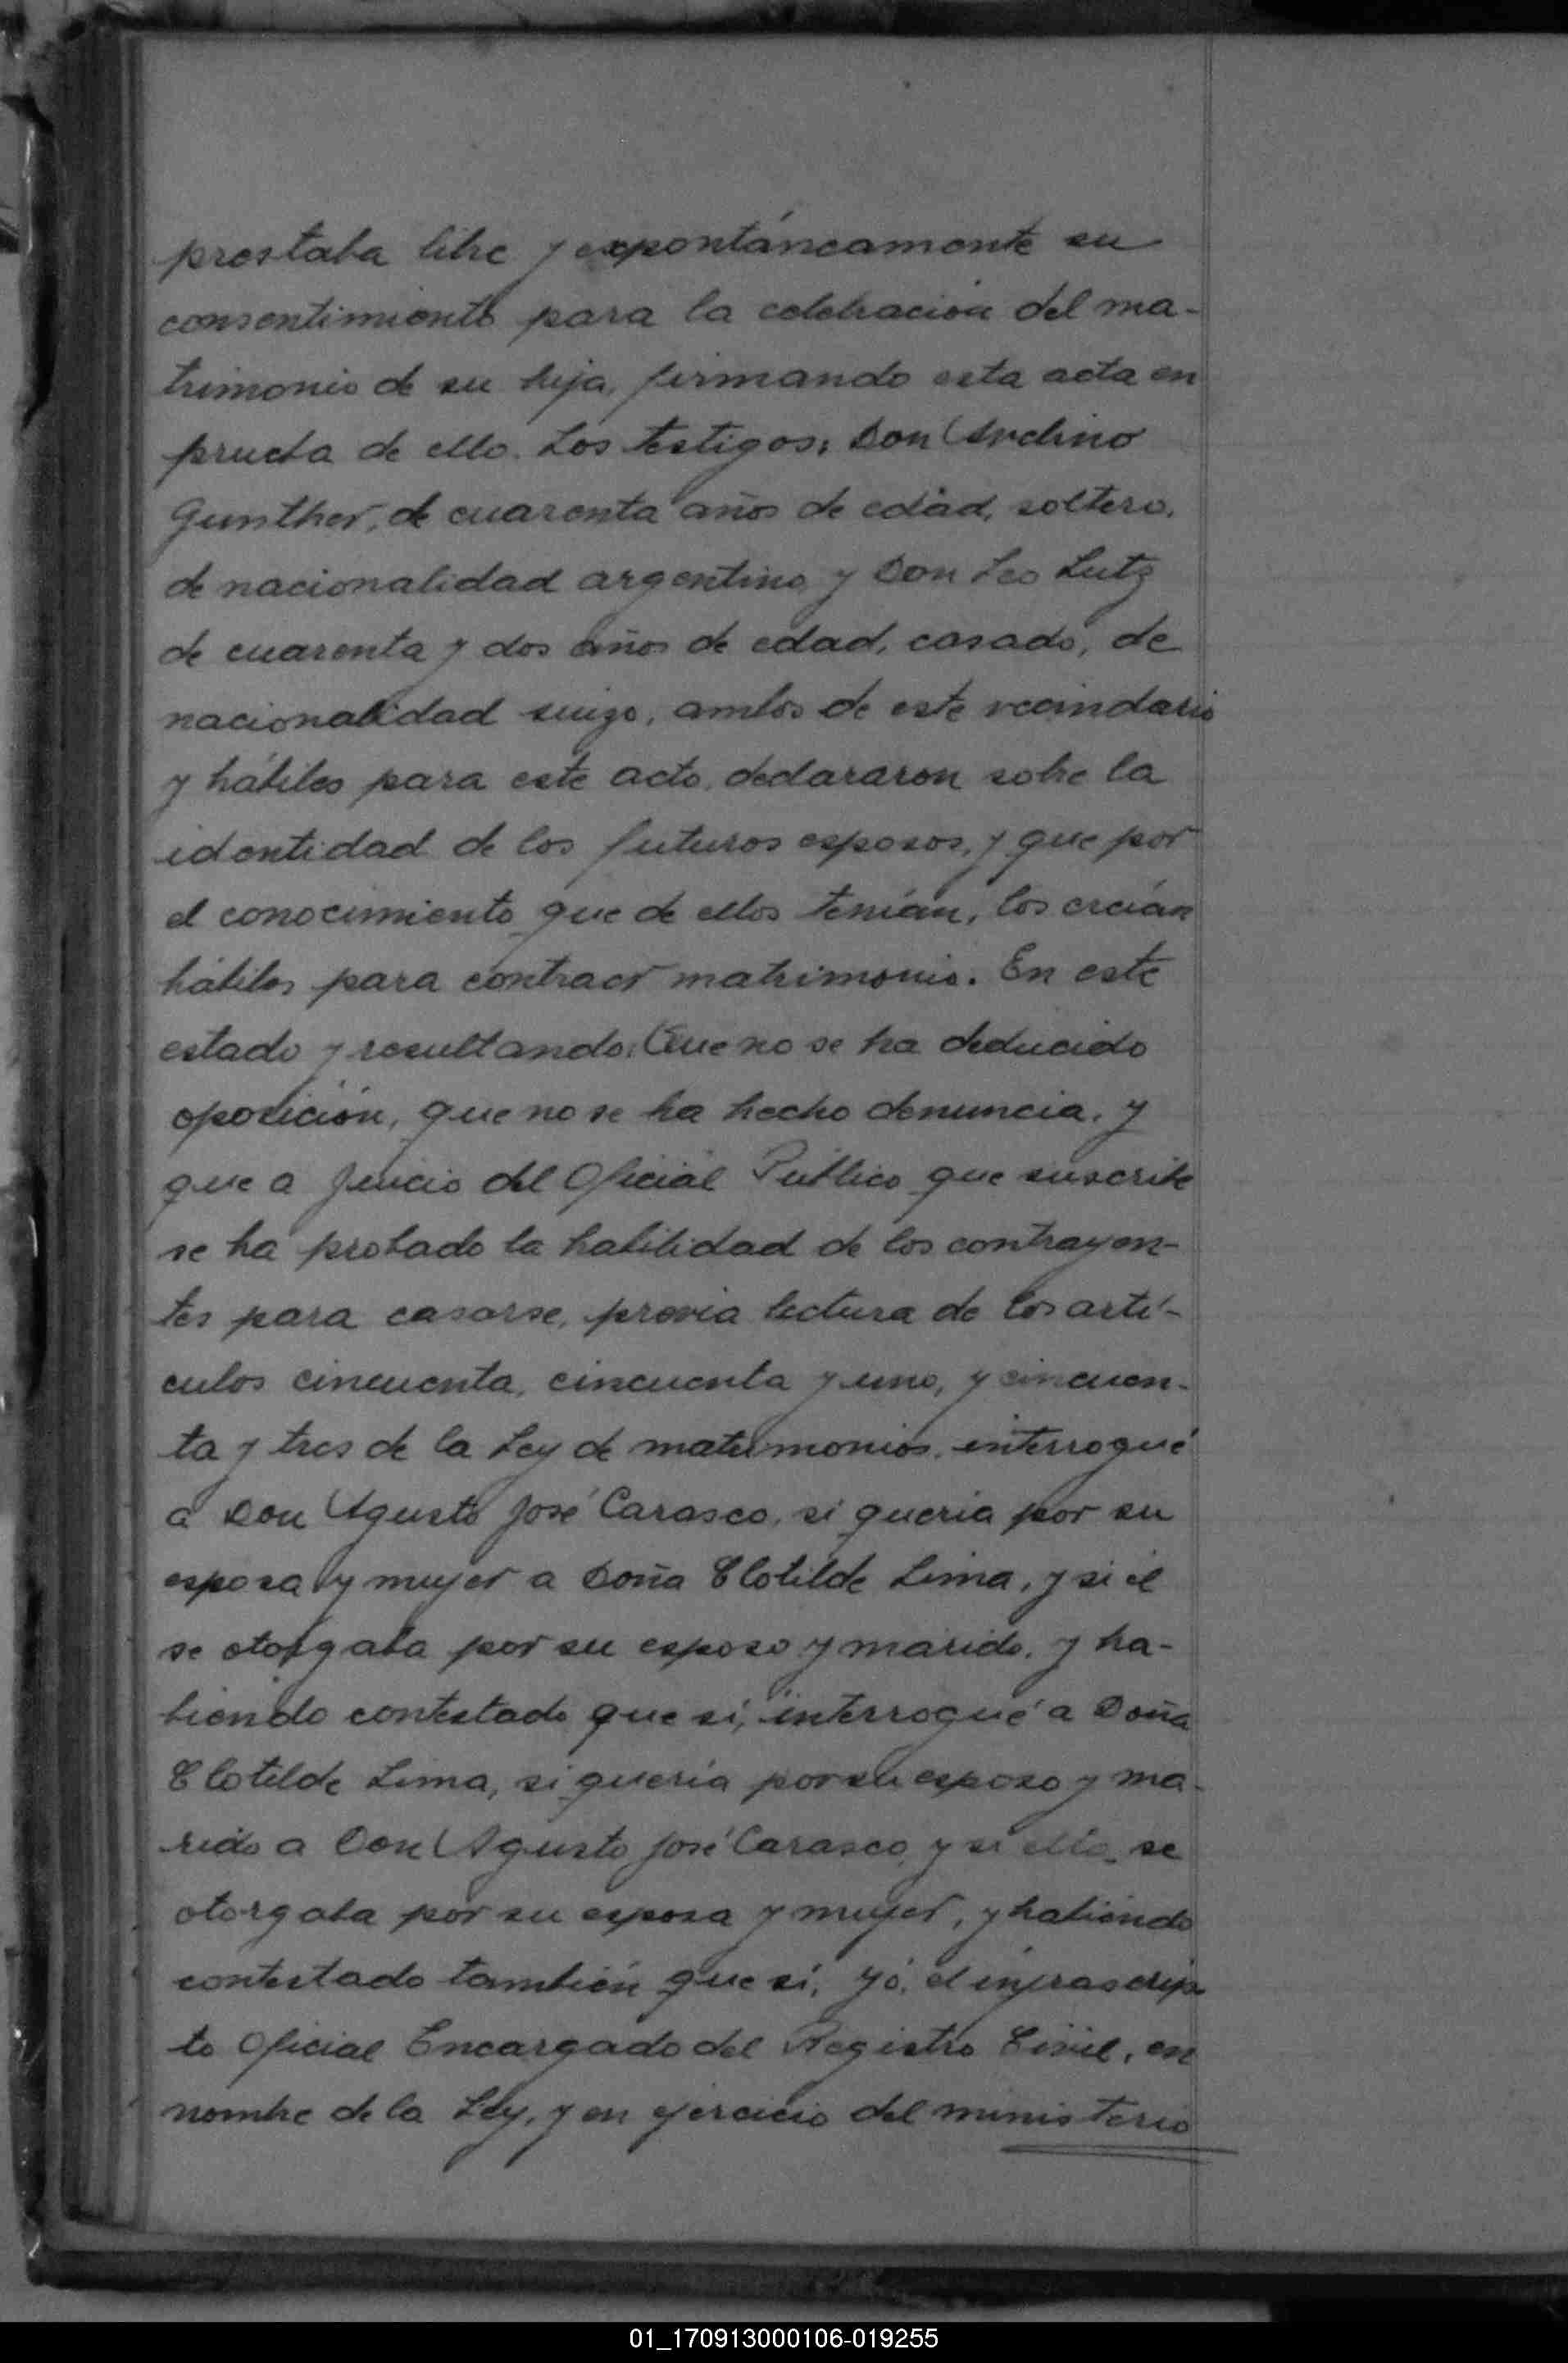 prestaba libre y expontáneamente su
consentimiento para la celebración del ma-
trimonio de su hija, firmando esta acta en
prueba de ello. Los testigos: Don Avelino
Gunther, de cuarenta años de edad, soltero,
de nacionalidad argentino y Don Leo Lutz
de cuarenta y dos años de edad, casado, de
nacionalidad suizo, ambos de este vecindario
y hábiles para este acto, declararon sobre la
identidad de los futuros esposos, y que por
el conocimiento que de ellos tenían, los creían
hábiles para contraer matrimonio. En este
estado y resultando: Que no se ha deducido
oposición, que no se ha hecho denuncia, y
que a juicio del Oficial Público que suscribe
se ha probado la habilidad de los contrayen-
tes para casarse, previa lectura de los artí-
culos cincuenta, cincuenta y uno, y cincuen-
ta y tres de la Ley de matrimonios, interrogué
a Don Agusto José Carasco, si quería por su
esposa y mujer a Doña Clotilde Lima, y si él
se otorgaba por su esposo y marido, y ha-
biendo contestado que sí, interrogué a Doña
Clotilde Lima, si quería por su esposo y ma-
rido a Don Agusto José Carasco, y si ella se
otorgaba por su esposa y mujer, y habiendo
contestado también que sí, yó, el infrascrip
to Oficial Encargado del Registro Civil, en
nombre de la Ley, y en ejercicio del ministerio
01_170913000106-019255